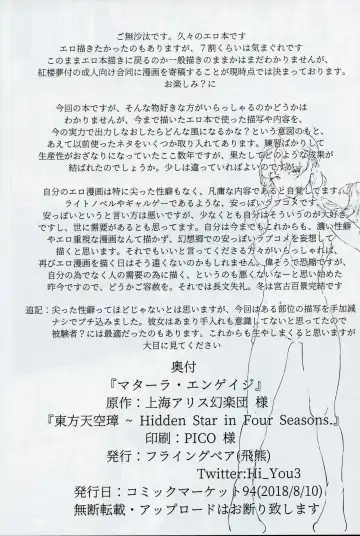 ご無沙汰です。久々のエロ本です
エロ描きたかったのもありますが、7割くらいは気まぐれです
このままエロ本描きに戻るのか一般描きのままかはまだわかりませんが、
紅楼夢付の成人向け合同に漫画を寄稿することが現時点では決まっております。
お楽しみ？に
今回の本ですが、そんな物好きな方がいらっしゃるのかどうかは
わかりませんが、今まで描いたエロ本で使った描写や内容を、
今の実力で出力しなおしたらどんな風になるかな？という意図のもと、
あえて以前使ったネタをいくつか取り入れてあります。練習ばかりして
生産性がおざなりになっていたここ数年ですが、果たしてどのような成果が
結ばれたのでしょうか。少しは違っていればよいのですが。
自分のエロ漫画は特に尖った性癖もなく、凡庸な内容であると自覚してます。
ライトノベルやギャルゲーであるような、安っぽいラブコメです。
安っぽいという言い方は悪いですが、少なくとも自分はそういうのが大好き
ですし、世に需要があるとも思ってます。自分は今までもこれからも、濃い性癖
やエロ重視な漫画なんて描かず、幻想郷での安っぽいラブコメを妄想して
描くと思います。それでもいいと言ってくださる方々がいらっしゃれば、
再びエロ漫画を描く日はそう遠くないのかもしれません。偉そうで恐縮ですが、
自分の為でなく人の需要の為に描く、というのも悪くないなーと思い始めた
昨今ですので、どうかご容赦を。それでは長文失礼。冬は宮古百景完結です
追記：尖った性癖ってほどじゃないとは思いますが、今回はある部位の描写を手加減
ナシでブチ込みました。彼女はあまり手入れも意識してないと思ってたので
被験者？には最適だったのもあります。これからも生やしまくると思いますが
大目に見てください
奥付
『マターラ・エンゲイジ』
原作：上海アリス幻楽団 様
『東方天空璋 ~ Hidden Star in Four Seasons.』
印刷：PICO 様
発行：フライングベア(飛熊)
Twitter:Hi_You3
発行日：コミックマーケット94(2018/8/10)
無断転載・アップロードはお断り致します